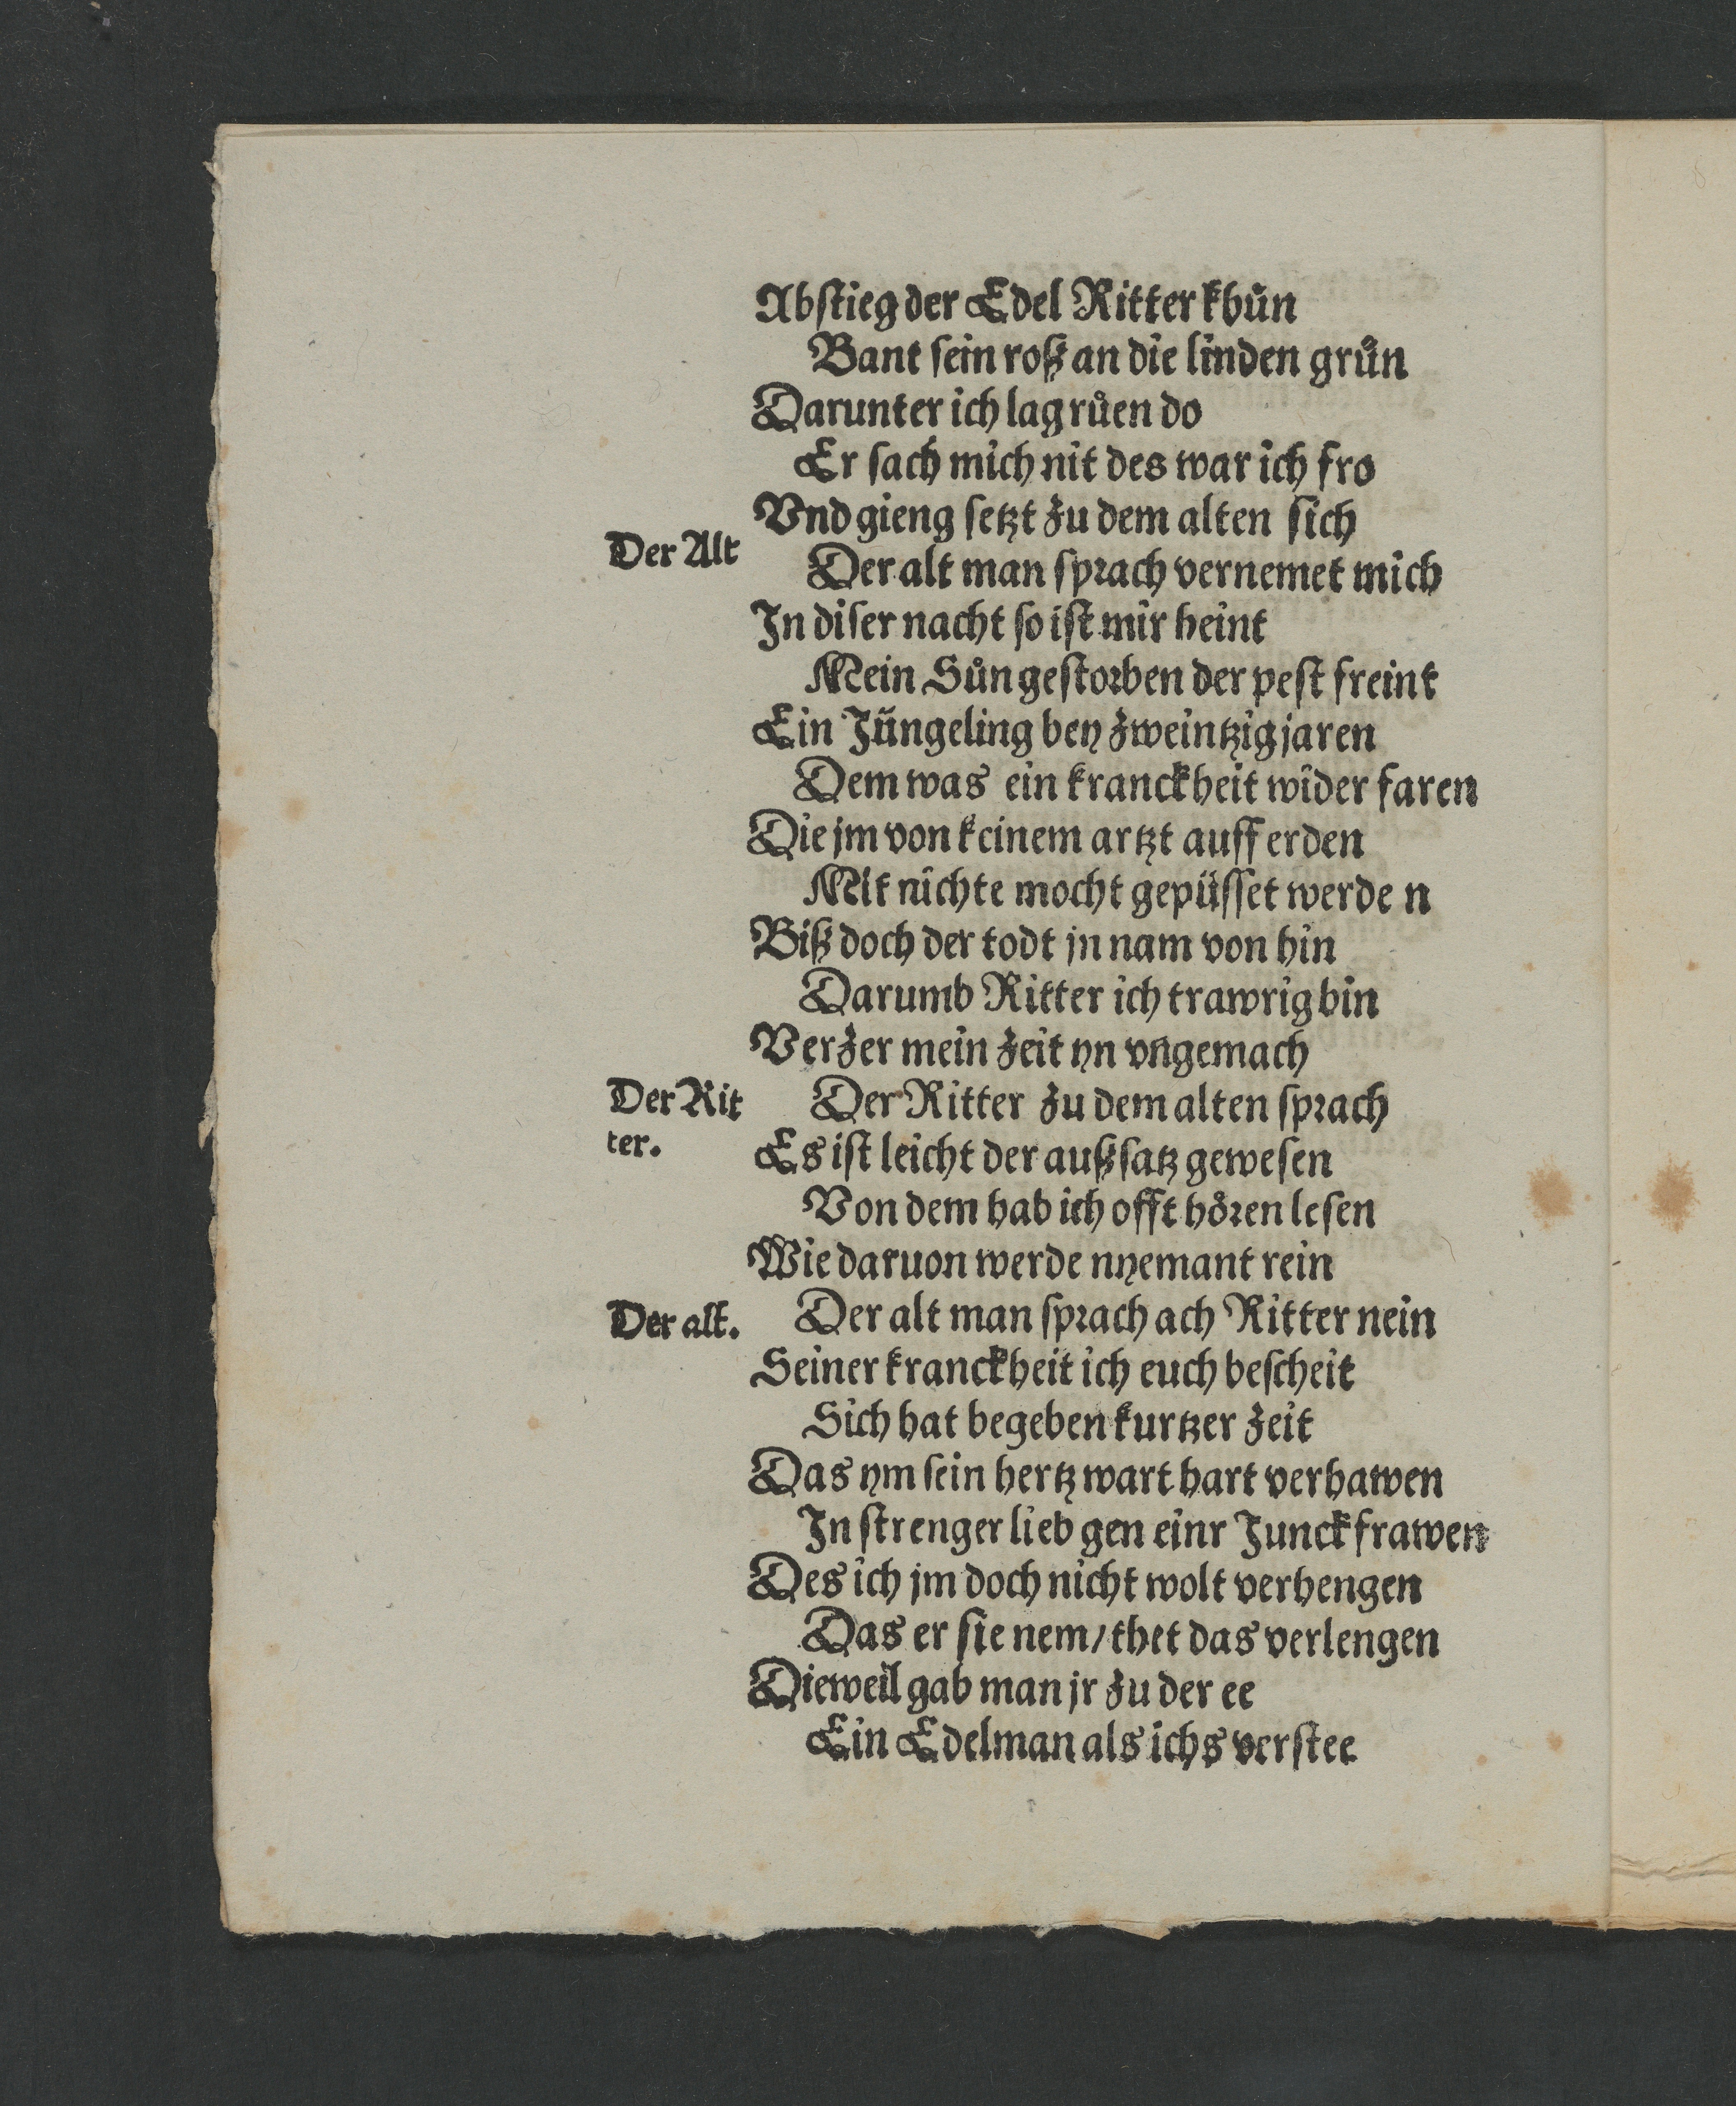 Abstieg der Edel Ritter khůn
Bant sein roß an die linden grůn
Darunter ich lag růen do
Er sach mich nit des war ich fro
Vnd gieng setzt zu dem alten sich
Der Alt
Der alt man sprach vernemet mich
In diser nacht so ist mir heint
Mein Sůn gestorben der pest freint
Ein Jüngeling bey zweintzig jaren
Dem was ein kranckheit wider faren
Die jm von keinem artzt auff erden
Mit nichte mocht gepüsset werde n
Biß doch der todt jn nam von hin
Darumb Ritter ich trawrig bin
Verzer mein zeit yn vngemach
Der Rit
ter.
Der Ritter zu dem alten sprach
Es ist leicht der außsatz gewesen
Von dem hab ich offt hören lesen
Wie daruon werde nyemant rein
Der alt.
Der alt man sprach ach Ritter nein
Seiner kranckheit ich euch bescheit
Sich hat begeben kurtzer zeit
Das ym sein hertz wart hart verhawen
In strenger lieb gen einr Junckfrawen
Des ich jm doch nicht wolt verhengen
Das er sie nem/ thet das verlengen
Dieweil gab man jr zu der ee
Ein Edelman als ichs verstee